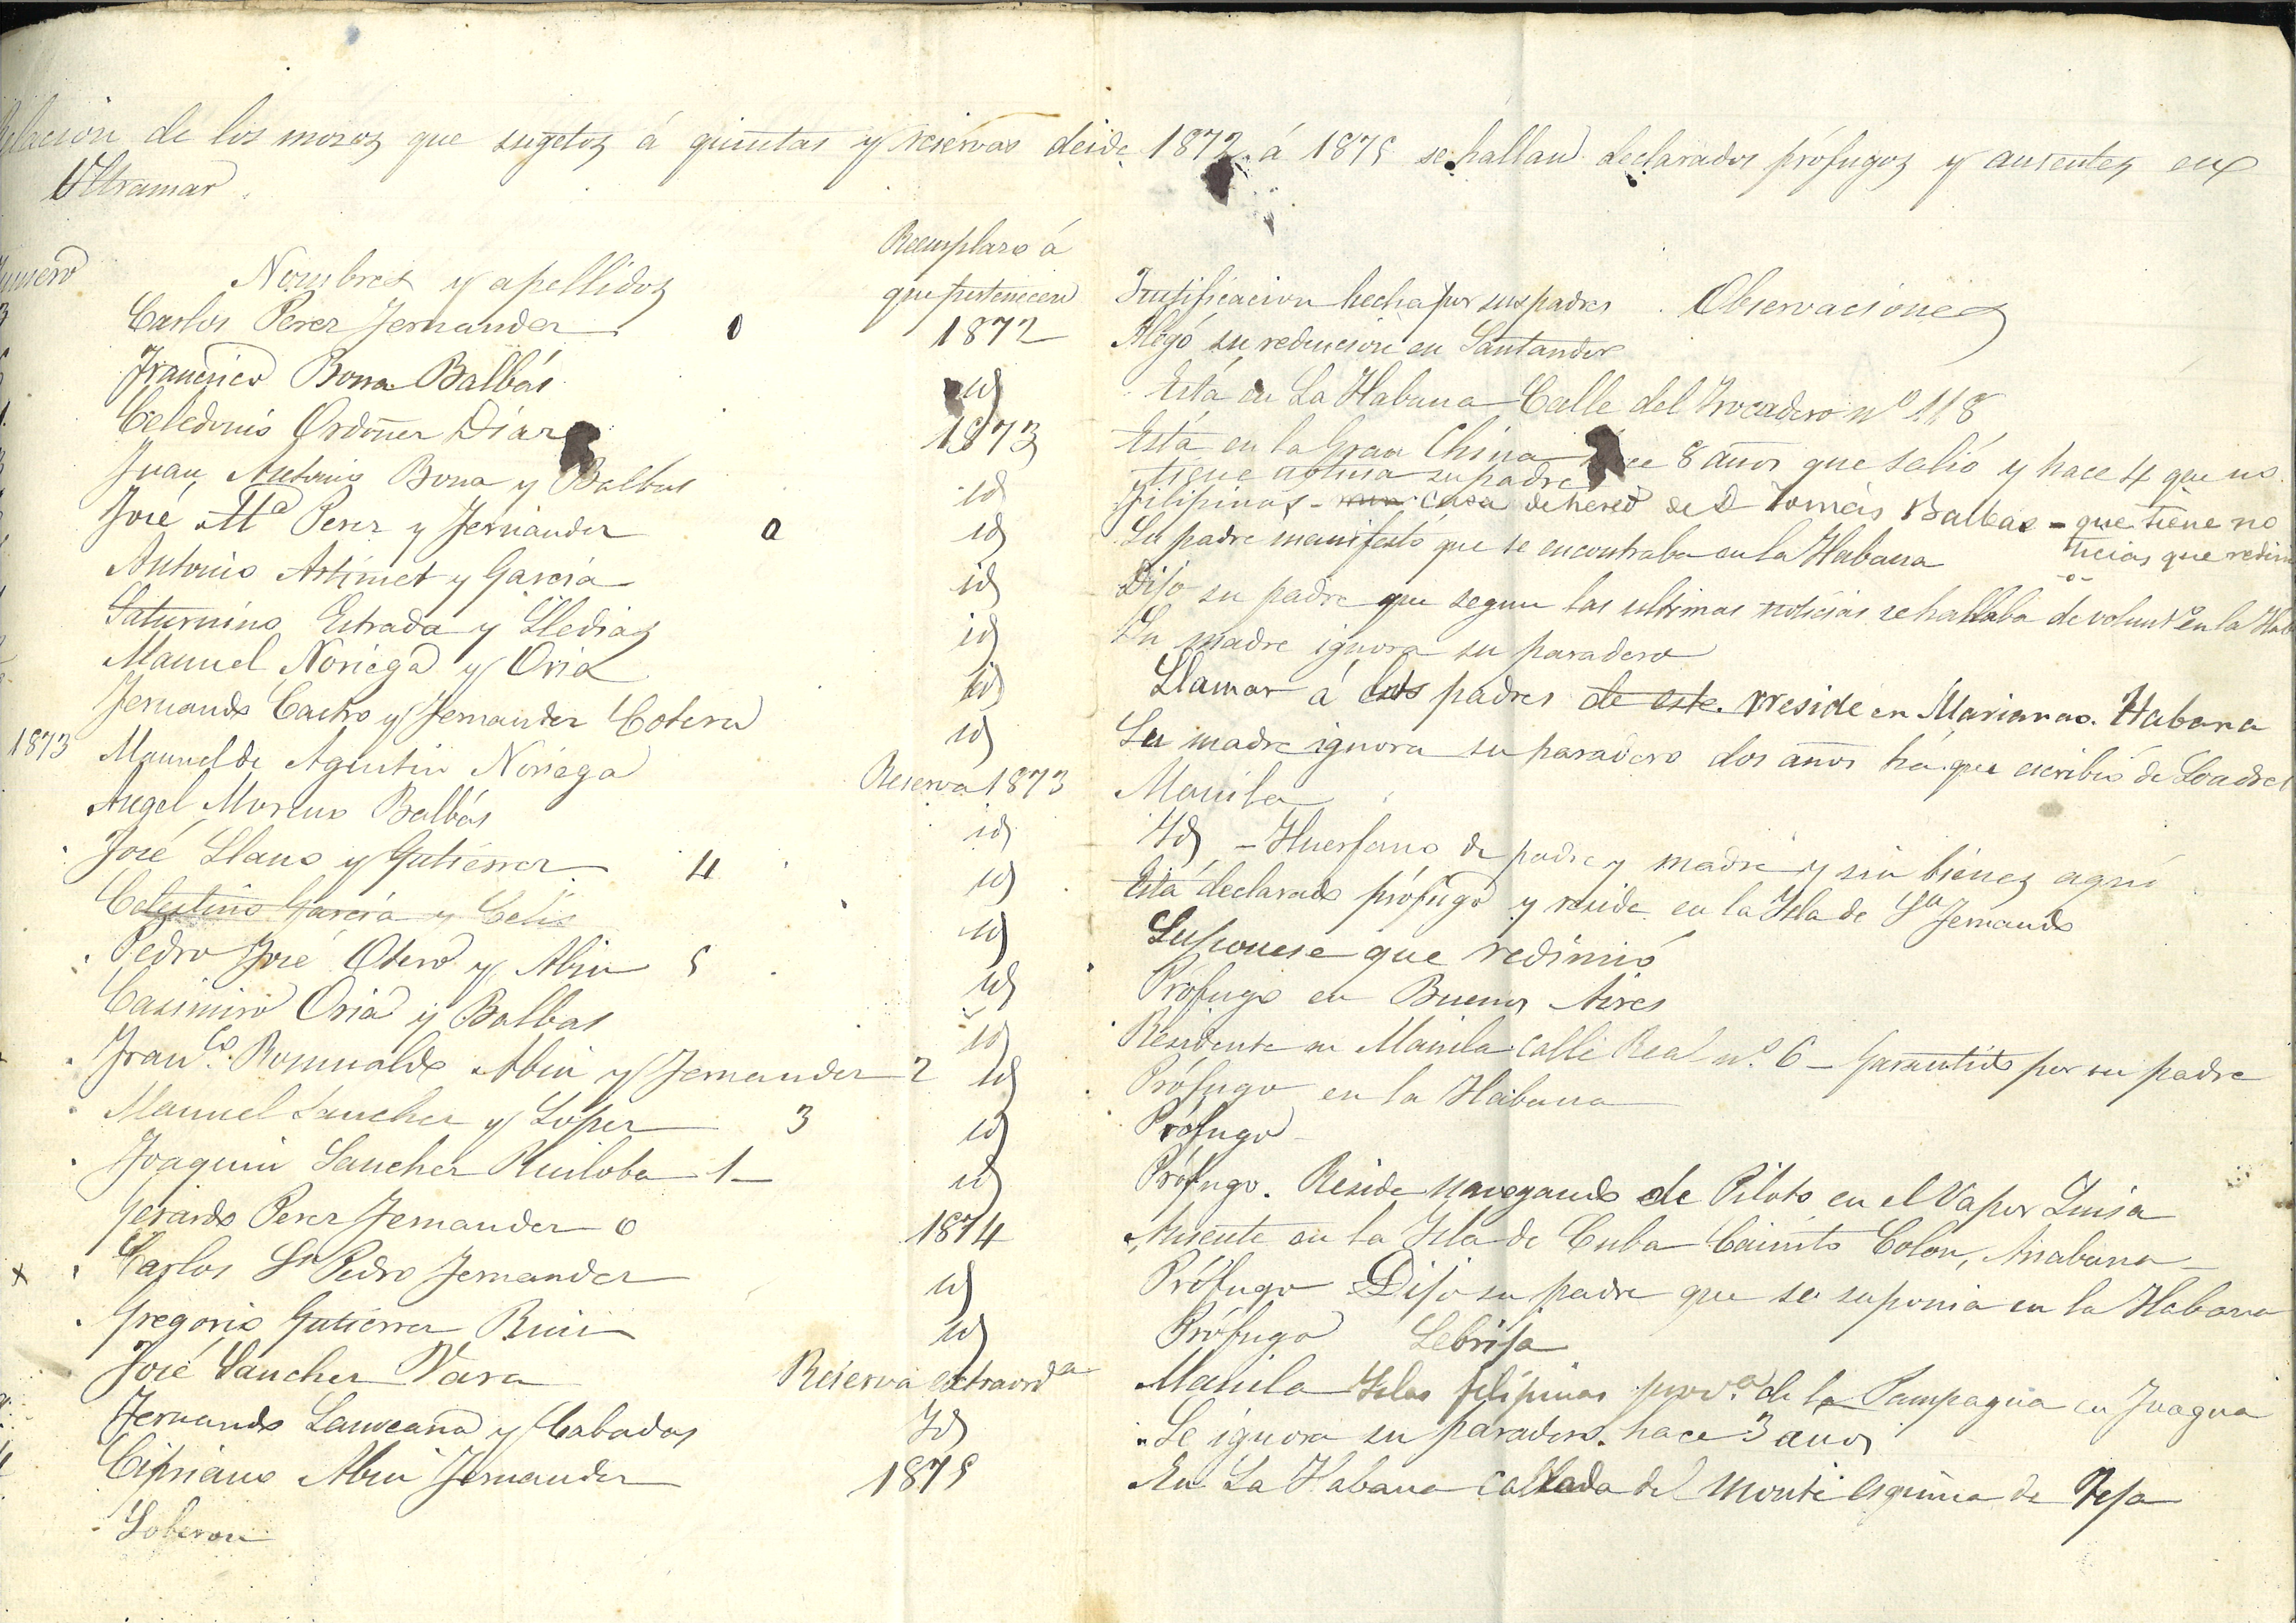 Relacion de los mozos que sugetos á quintas y reservas desde 1872 á 1875 se hallan declarados prófugos y ausentes en
Ultramar
Numero
Nombres y apellidos
Reemplazo á
que pertenecen
Justificacion hecha por sus padres . Observaciones
Carlos Perez Fernandez 0 1872 Alegó su redencion en Santander
Francisco Bona Balbás id Está en La Habana Calle del Trocadero nº 118
Celedonio Ordoñez Diaz 1873 Está en la Gran China hace 8 años que salió y hace 4 que no
tiene noticia su padre
Juan Antonio Bona y Balbas id Filipinas - casa de D Tomás Balbas - que tiene no
ticias que redim
José Mª Perez y Fernandez 0 id Su padre manifestó que se encontraba en la Habana
Antonio Artimet y Garcia id Dijo su padre que segun las ultimas noticias se hallaba de volunt.º en la Hab
Saturnino Estrada y Lledias id Su madre ignora su paradero
Manuel Noriega y Oria id Llamar á los padres de este. reside en Marianao. Habana
Fernando Castro y Fernandez Cotera id Su madre ignora su paradero dos años há que escribió de Londres
1873 Manuel de Agustin Noriega Reserva 1873 Manila
Angel Moreno Balbás id Id - Huerfano de padre y madre y sin bienes aqui
José Llano y Gutiérrez 4 id Está declarado prófugo y reside en la Isla de Sn Fernando
Celestino Garcia y Celis id Suponese que redimió
Pedro José Otero y Abin 5 id Prófugo en Buenos Aires
Casimiro Oria y Balbas id Residente en Manila calle Real nº. 6 - Garantido por su padre
Franco. Romualdo Abin y Fernandez 2 id Prófugo en la Habana
Manuel Sanchez y Lopez 3 id Prófugo
Joaquin Sanchez Ruiloba 1 - id Prófugo. Reside navegando de Piloto en el Vapor Luisa
Gerardo Perez Fernandez 0 1874 Ausente en la Isla de Cuba Caimito Colon,
x Carlos Sn Pedro Fernandez id Prófugo Dijo su padre que se suponia en la Habana
Gregorio Gutiérrez Ruiz id Prófugo Lebrija
José Sanchez Vara Reserva extraordª Manila Islas filipinas provª de la Pampagna en
Fernando y Cabadas Id Se ignora su paradero. hace 3 años
Cipriano Abin Fernandez 1875 En La Habana calzada del Monte esquina de Tejas
Soberon